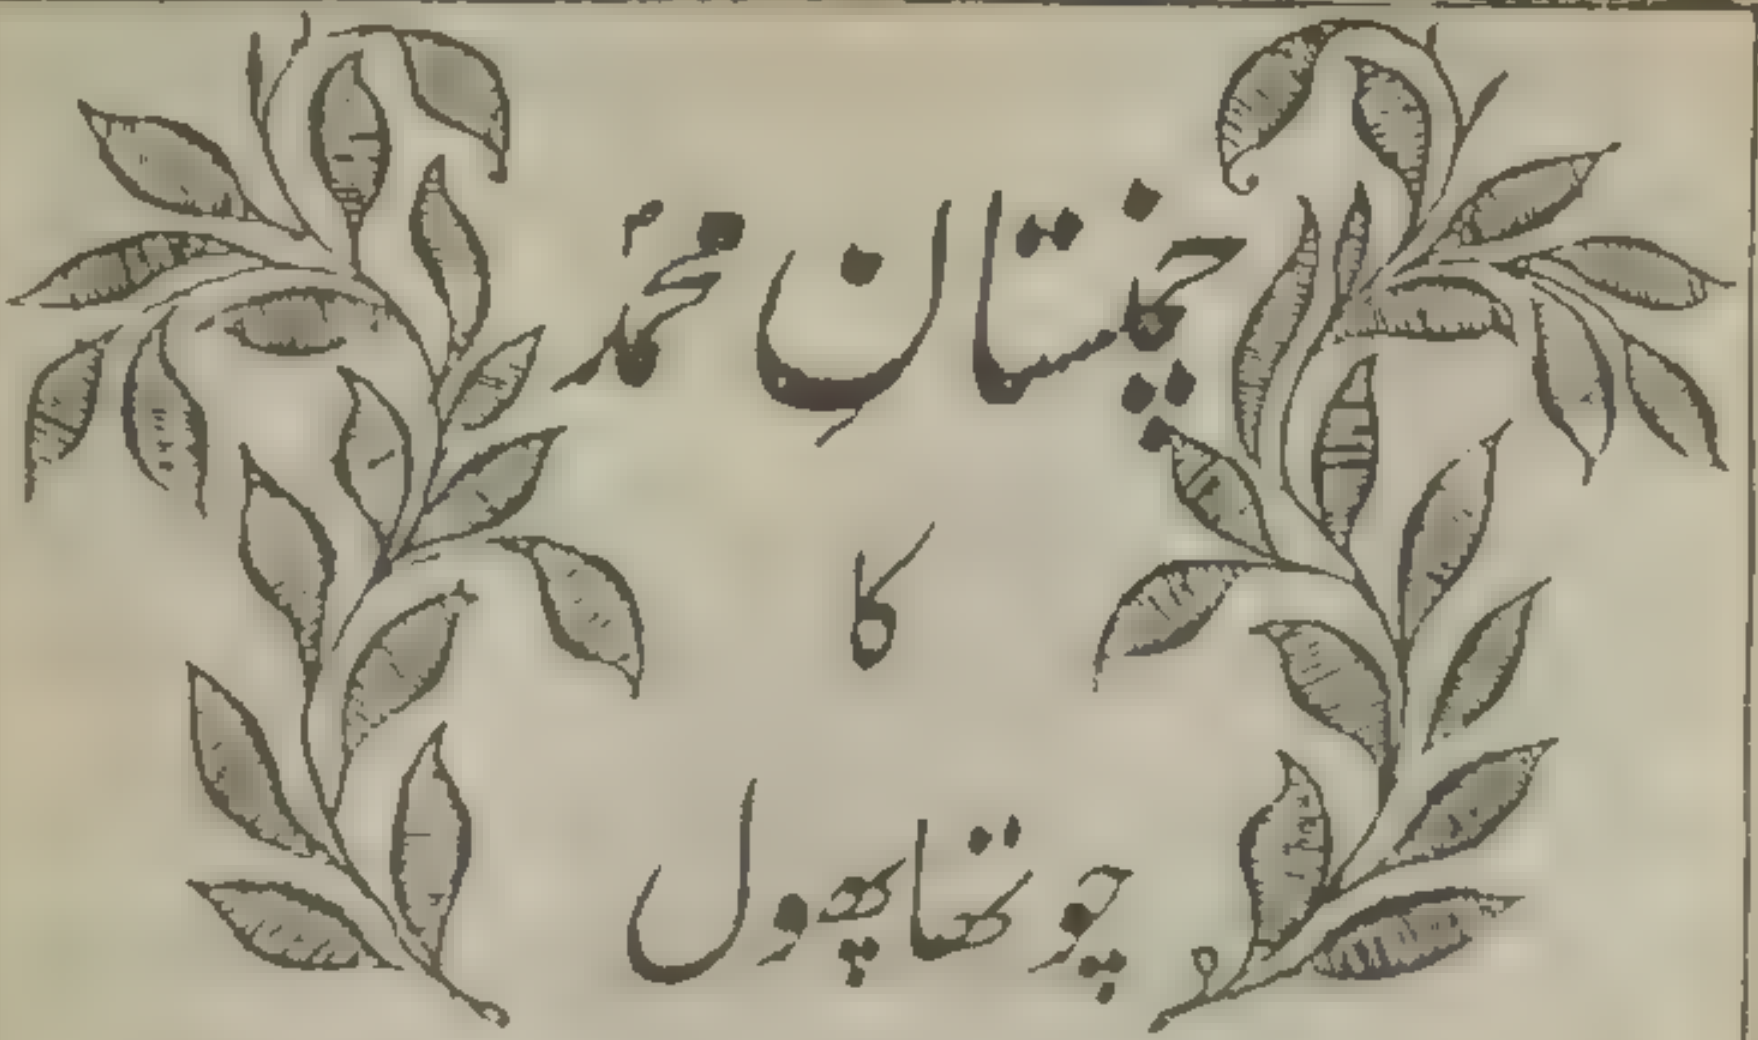 چمنستانِ محمدؐ
کا
چوتھا پھول